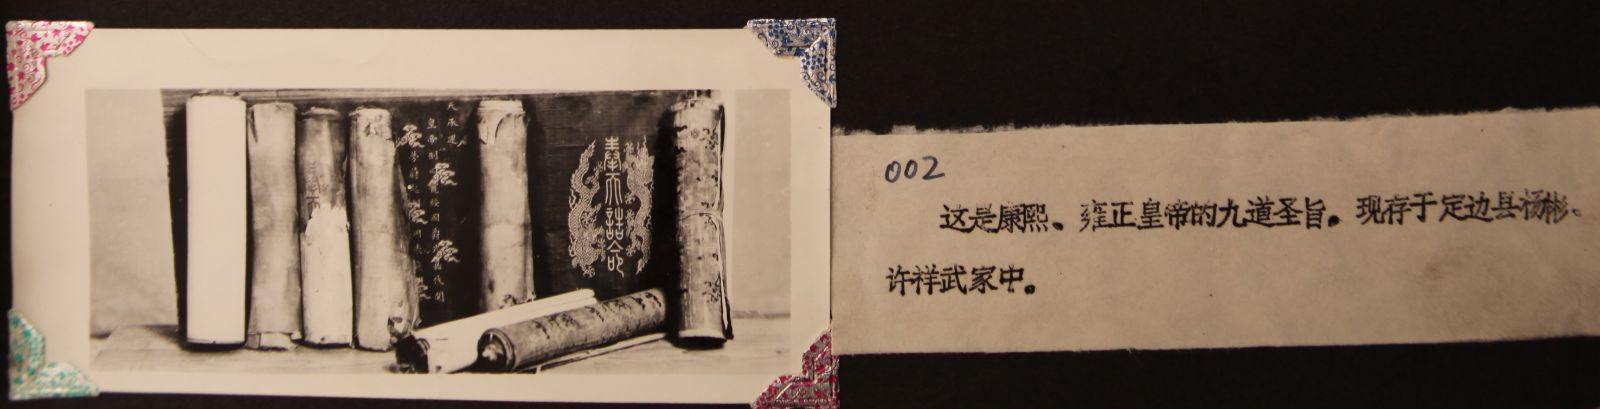 奉天誥命
002
这是康熙、雍正皇帝的九道圣旨。现存于定边县杨彬、
许祥武家中。